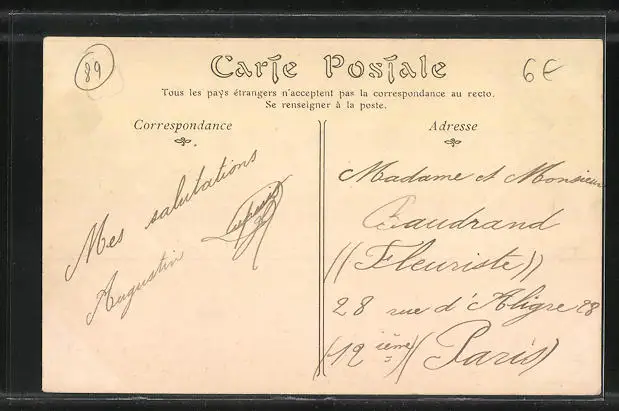 89
6€
Carte Postale
Tous les pays étrangers n'acceptent pas la correspondance au recto.
Se renseigner à la poste.
Correspondance
Mes salutations
Augustin
Adresse
Madame et Monsieur
Baudrand
((Fleuriste))
28 rue d'Aligre 28
(12 ième) (Paris)